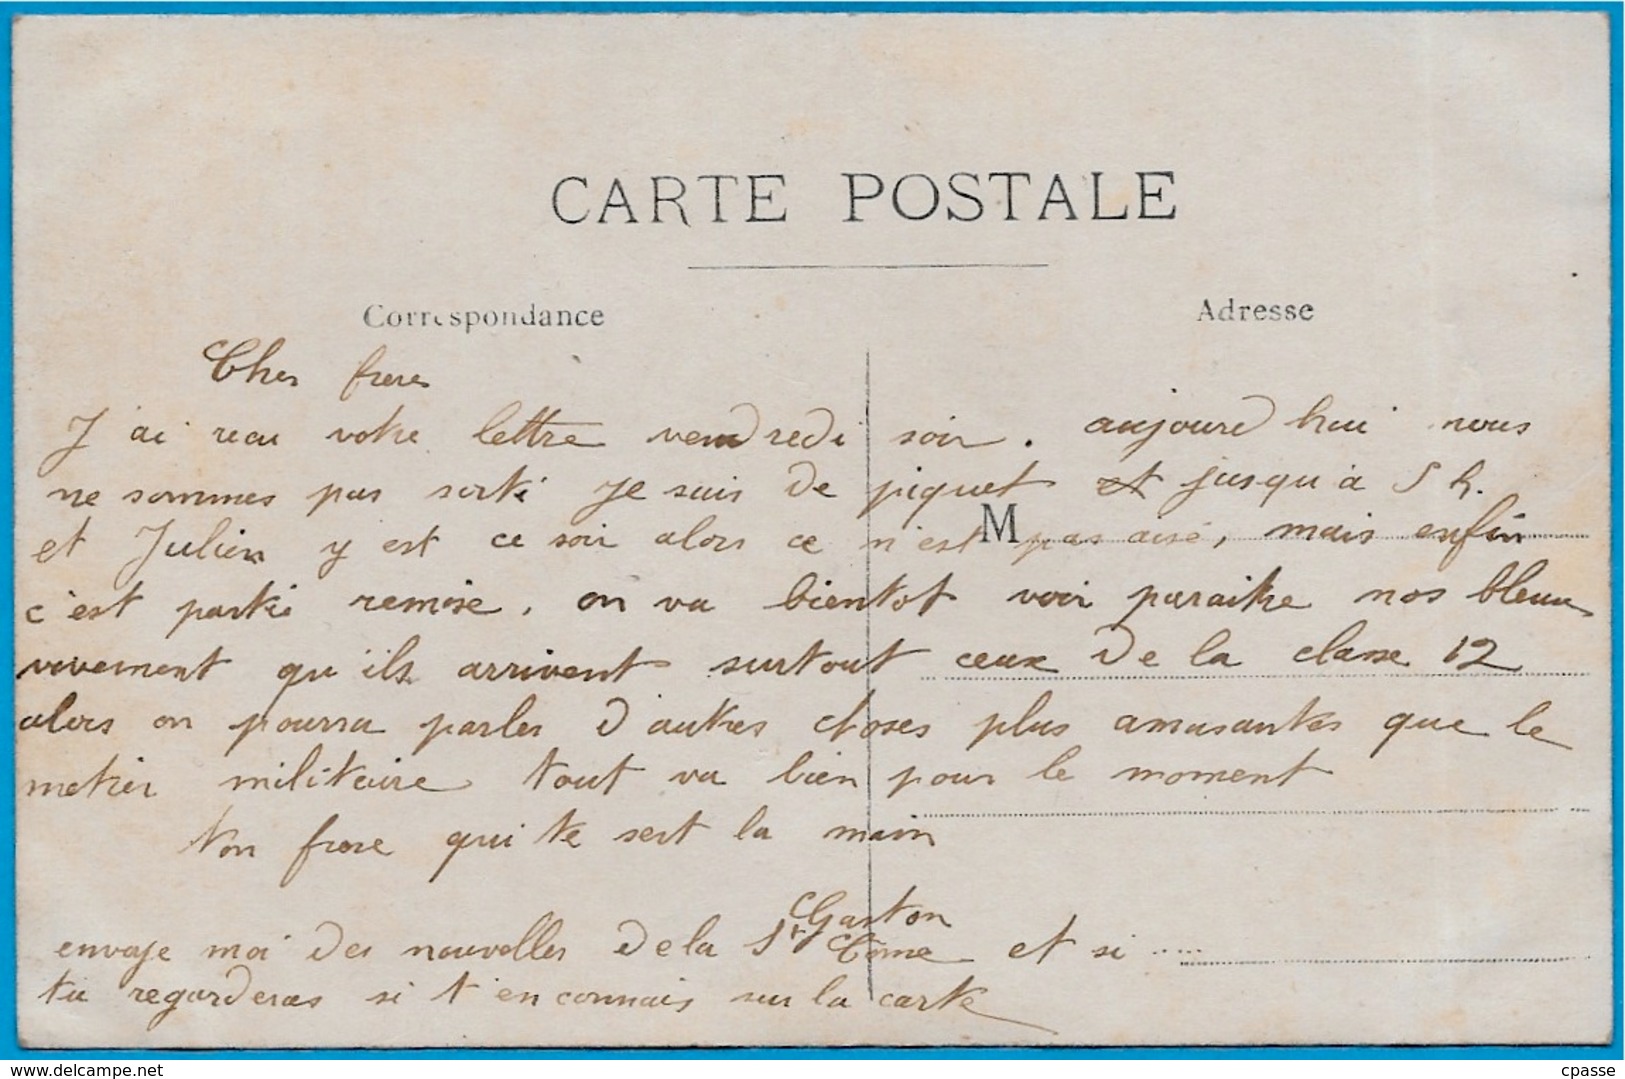 CARTE POSTALE
Correspondance
Adresse
Cher frere
J'ai recu votre lettre vendredi soir. aujourd hui nous
ne sommes pas sorti je suis de piquet et jusqu'a 5 h.
M
et Julien y est ce soir alors ce n'est pas aisé, mais enfin
c'est partie remise, on va bientot voir paraitre nos bleus
vivement qu'ils arrivent surtout ceux de la classe 12
alors on pourra parler d'autres choses plus amusantes que le
metier militaire tout va bien pour le moment
Ton frere qui te sert la main
Gaston
envoje moi des nouvelles de la St Côme et si .....
tu regarderas si t'en connais sur la carte
delcampe.net
cpasse